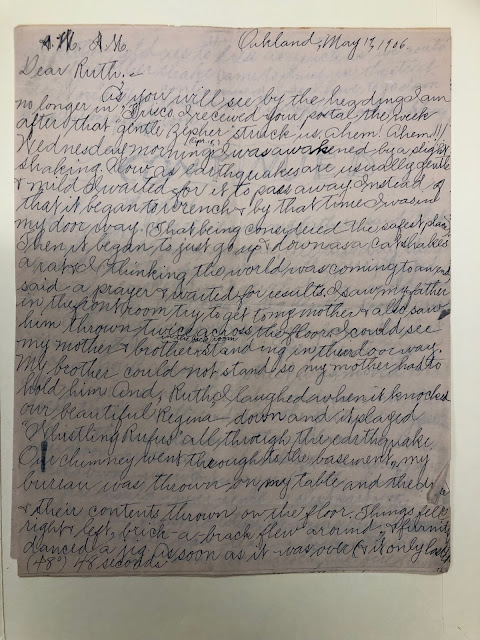 A. M.
Oakland, May 17, 1906
Dear Ruth:-
As you will see by the heading I am
no longer in 'Frisco. I received your postal the week
after that "gentle Zepher" struck us. Ahem! Ahem!!!
Wednesday morning I was awakened by a slight
shaking. Now as earthquakes are usually gentle
& mild I waited for it to pass away. Instead of
that it began to wrench & by that time I was in
my door way. That being considered the safest place.
Then it began to just go up & down as a cat shakes
a rat & I thinking the world was coming to an end
said a prayer & waited for results. I saw my father
in the front room try to get to my mother & also saw
him thrown twice across the floor. I could see
in the back room
my mother & brother standing in their door way.
My brother could not stand so my mother had to
hold him. And, Ruth, I laughed when it knocked
our beautiful Regina down and it played
"Whistling Rufus" all through the earthquake.
Our chimney went through to the basement, my
bureau was thrown on my table and the
& their contents thrown on the floor. Things fell
right & left, brick-a-brack flew around, & furniture
danced a jig. As soon as it was over & it only lasted
(48") 48 seconds